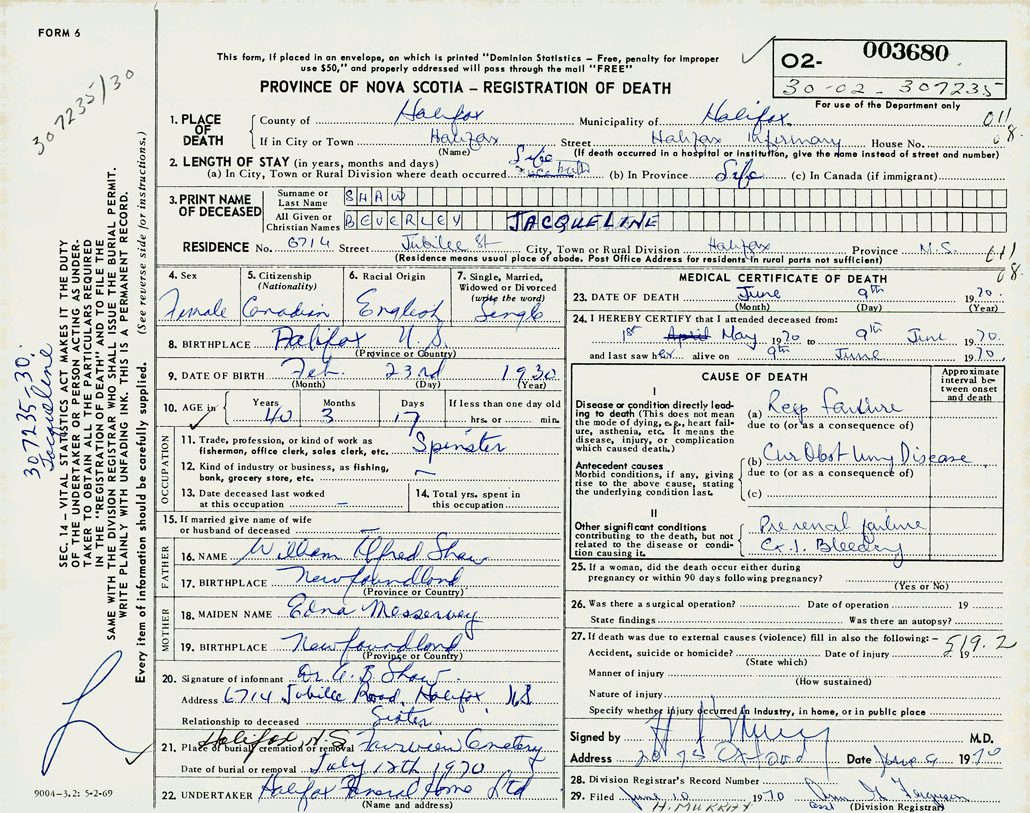 FORM 6
This form, if placed in an envelope, on which is printed "Dominion Statistics – Free, penalty for improper
use $50," and properly addressed will pass through the mail "FREE"
PROVINCE OF NOVA SCOTIA – REGISTRATION OF DEATH
O2- 003680
30-02-307235
For use of the Department only
307235/30
307235-30.
Jacqueline
SEC. 14 – VITAL STATISTICS ACT MAKES IT THE DUTY
OF THE UNDERTAKER OR PERSON ACTING AS UNDER-
TAKER TO OBTAIN ALL THE PARTICULARS REQUIRED
IN THE "REGISTRATION OF DEATH" AND TO FILE THE
SAME WITH THE DIVISION REGISTRAR WHO SHALL ISSUE THE BURIAL PERMIT.
WRITE PLAINLY WITH UNFADING INK. THIS IS A PERMANENT RECORD.
Every item of information should be carefully supplied. (See reverse side for instructions.)
1. PLACE OF DEATH
County of Halifax Municipality of Halifax 011
If in City or Town Halifax Street Halifax Infirmary House No. 08
(Name) (If death occurred in a hospital or institution, give the name instead of street and number)
2. LENGTH OF STAY (in years, months and days)
(a) In City, Town or Rural Division where death occurred Life since birth (b) In Province Life (c) In Canada (if immigrant)
3. PRINT NAME OF DECEASED
Surname or Last Name SHAW
All Given or Christian Names BEVERLEY JACQUELINE
RESIDENCE No. 6714 Street Jubilee St City, Town or Rural Division Halifax Province N.S. 011
(Residence means usual place of abode. Post Office Address for residents in rural parts not sufficient) 08
4. Sex Female
5. Citizenship (Nationality) Canadian
6. Racial Origin English
7. Single, Married, Widowed or Divorced (write the word) Single
8. BIRTHPLACE Halifax N.S.
(Province or Country)
9. DATE OF BIRTH Feb. 23rd 1930
(Month) (Day) (Year)
10. AGE in Years 40 Months 3 Days 17 If less than one day old hrs. or min.
OCCUPATION
11. Trade, profession, or kind of work as fisherman, office clerk, sales clerk, etc. Spinster
12. Kind of industry or business, as fishing, bank, grocery store, etc. –
13. Date deceased last worked at this occupation –
14. Total yrs. spent in this occupation
15. If married give name of wife or husband of deceased –
FATHER
16. NAME William Alfred Shaw
17. BIRTHPLACE Newfoundland
(Province or Country)
MOTHER
18. MAIDEN NAME Edna Messervey
19. BIRTHPLACE Newfoundland
(Province or Country)
20. Signature of informant Dr A. B. Shaw
Address 6714 Jubilee Road, Halifax NS
Relationship to deceased Sister
21. Place of burial cremation or removal Halifax N.S. Fairview Cemetery
Date of burial or removal July 12th 1970
22. UNDERTAKER Halifax Funeral Home Ltd
(Name and address)
9004-3.2: 5-2-69
MEDICAL CERTIFICATE OF DEATH
23. DATE OF DEATH June 9th 1970.
(Month) (Day) (Year)
24. I HEREBY CERTIFY that I attended deceased from:
1st April May 1970 to 9th June 1970.
and last saw her alive on 9th June 1970.
CAUSE OF DEATH
Approximate interval between onset and death
I
Disease or condition directly leading to death (This does not mean the mode of dying, e.g., heart failure, asthenia, etc. It means the disease, injury, or complication which caused death.)
(a) Resp Failure
due to (or as a consequence of)
Antecedent causes
Morbid conditions, if any, giving rise to the above cause, stating the underlying condition last.
(b) Chr Obst Lung Disease
due to (or as a consequence of)
(c)
II
Other significant conditions contributing to the death, but not related to the disease or condition causing it.
Pre renal failure
G.I. Bleeding
25. If a woman, did the death occur either during
pregnancy or within 90 days following pregnancy?
(Yes or No)
26. Was there a surgical operation? Date of operation 19
State findings Was there an autopsy?
27. If death was due to external causes (violence) fill in also the following: – 519.2
Accident, suicide or homicide? Date of injury 19
(State which)
Manner of injury
(How sustained)
Nature of injury
Specify whether injury occurred in industry, in home, or in public place
Signed by M.D.
Address 2075 Oxford Date June 9 1970
28. Division Registrar's Record Number
29. Filed June 10 1970 Ann G Ferguson
H. MURRAY (Division Registrar)